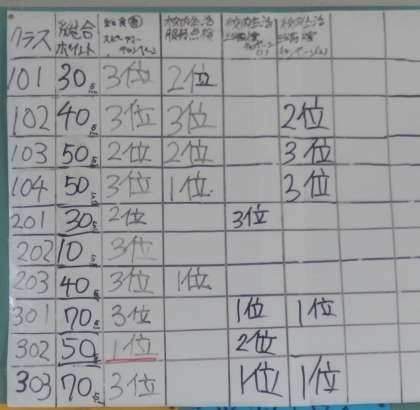 クラス 総合ポイント 給食 校内生活 服装点検 校内生活 校内生活
101 30点 3位 2位
102 40点 3位 3位 2位
103 50点 2位 2位 3位
104 50点 3位 1位 3位
201 30点 2位 3位
202 10点 3位
203 40点 3位 1位
301 70点 3位 1位 1位
302 50点 1位 2位
303 70点 3位 1位 1位